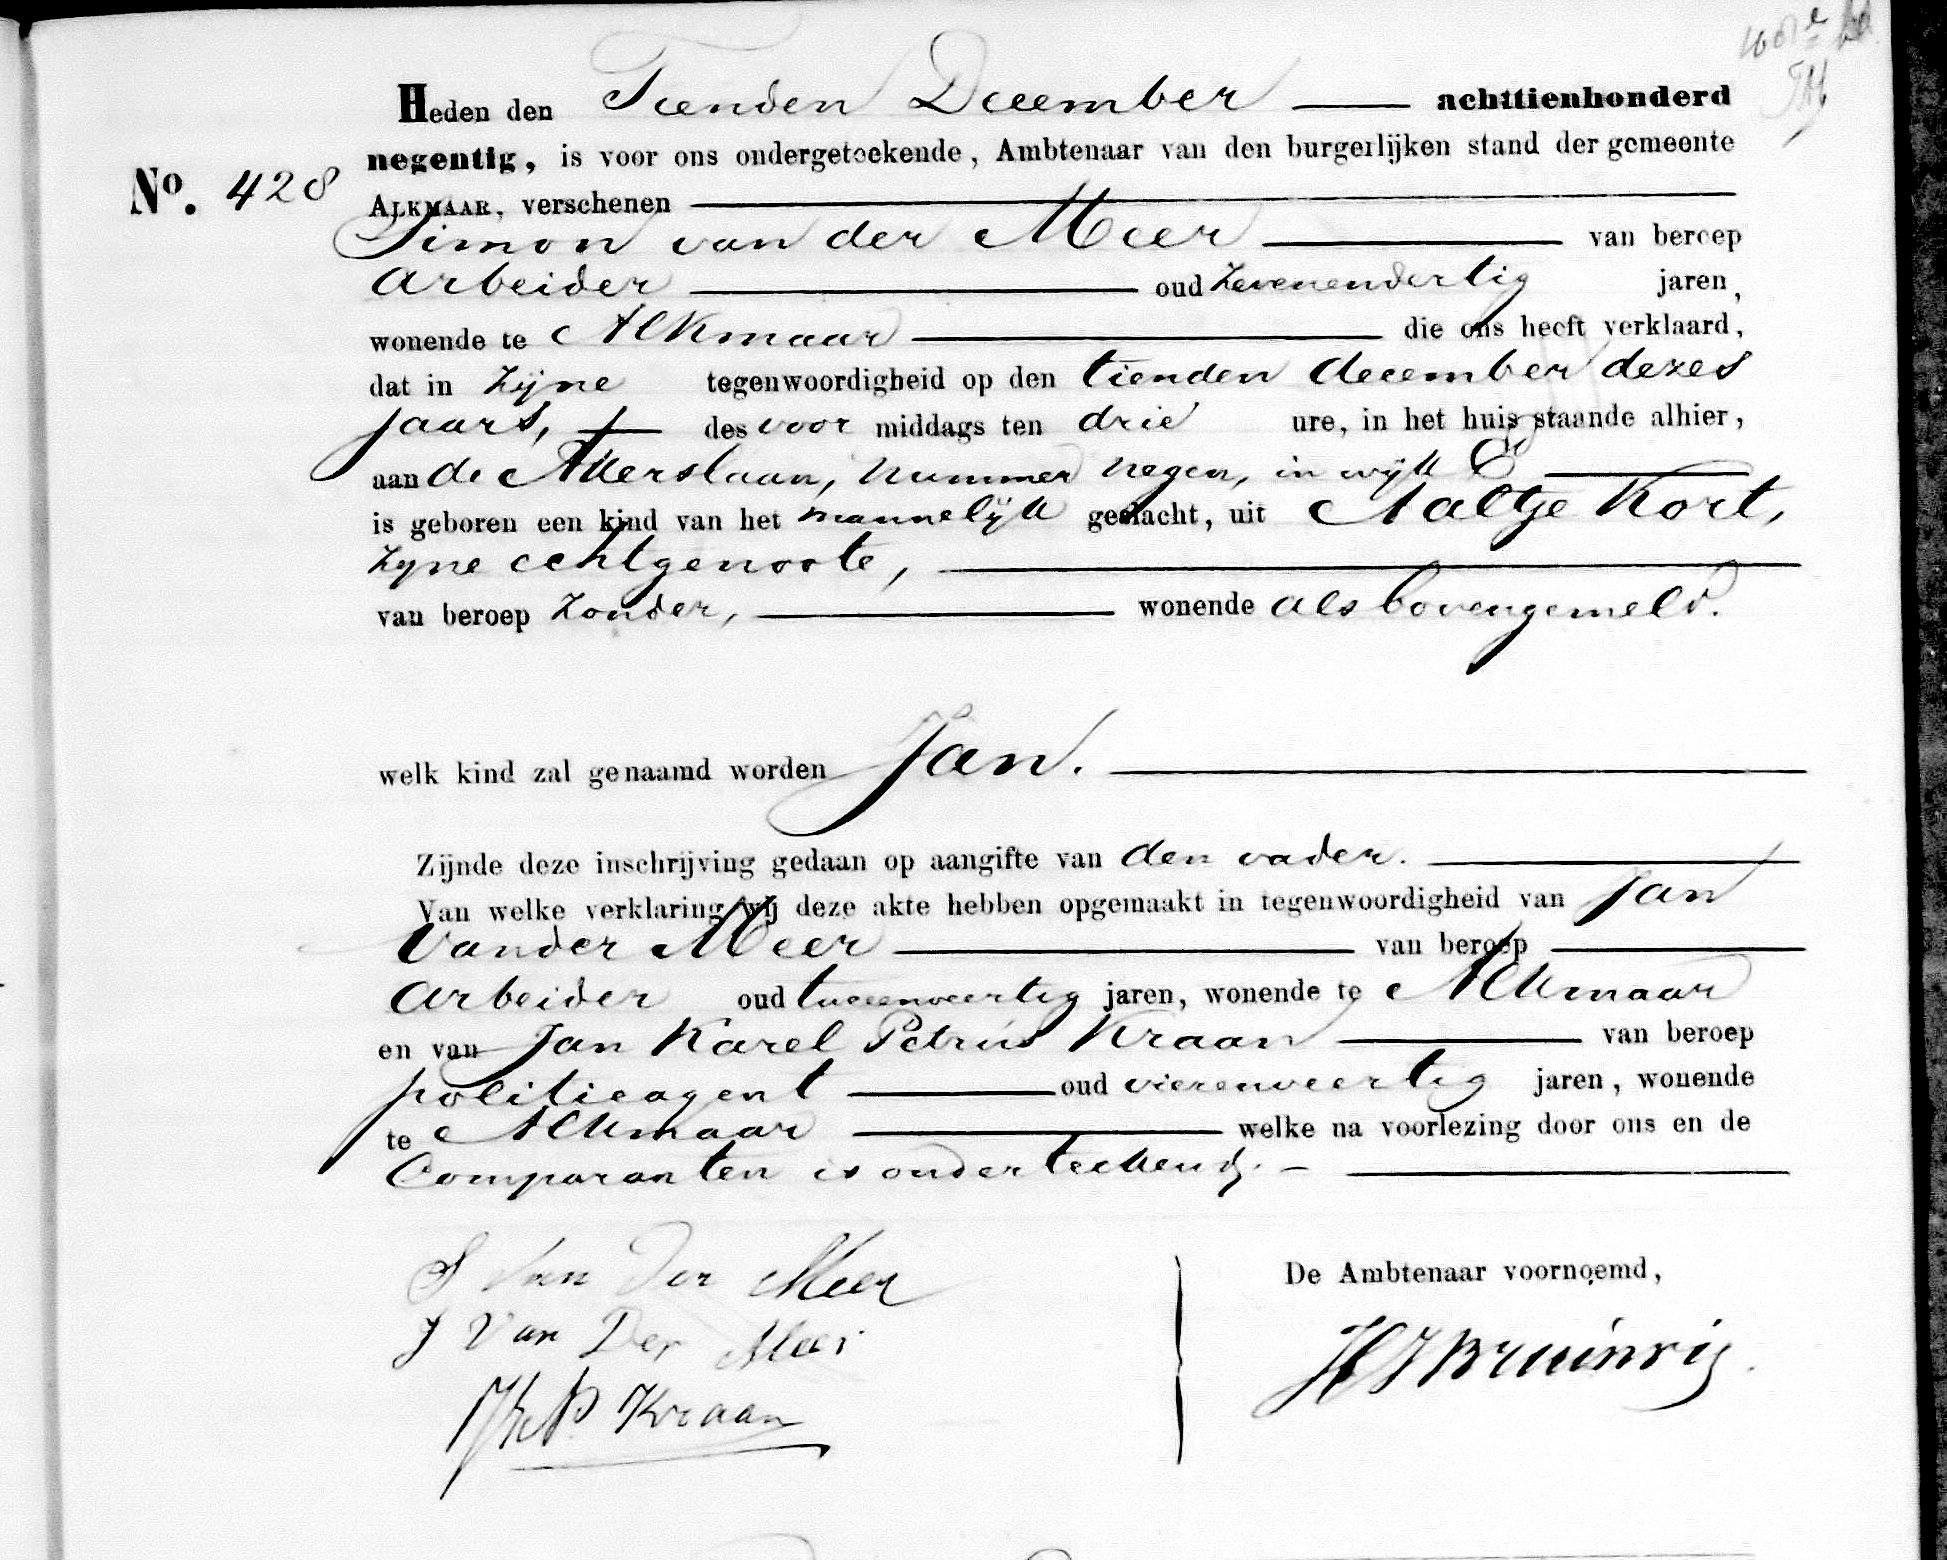 Heden den Tienden December achttienhonderd
negentig, is voor ons ondergeteekende, Ambtenaar van den burgerlijken stand der gemeente
No. 428
ALKMAAR, verschenen
Simon van der Meer van beroep
Arbeider oud zevenendertig jaren,
wonende te Alkmaar die ons heeft verklaard,
dat in zijne tegenwoordigheid op den tienden december dezes
jaars, des voor middags ten drie ure, in het huis staande alhier,
aan de nummer negen, in wijk E
is geboren een kind van het mannelijk geslacht, uit Aaltje Kort,
zijne echtgenoote,
van beroep zonder, wonende als bovengemeld.
welk kind zal genaamd worden Jan.
Zijnde deze inschrijving gedaan op aangifte van den vader.
Van welke verklaring wij deze akte hebben opgemaakt in tegenwoordigheid van Jan
van der Meer van beroep
Arbeider oud tweeenveertig jaren, wonende te Alkmaar
en van Jan Karel Petrus Kraan van beroep
politieagent oud vierenveertig jaren, wonende
te Alkmaar welke na voorlezing door ons en de
Comparanten is onderteekend.
S Van Der Meer
De Ambtenaar voornoemd,
J Van Der Meer
JKP Kraan